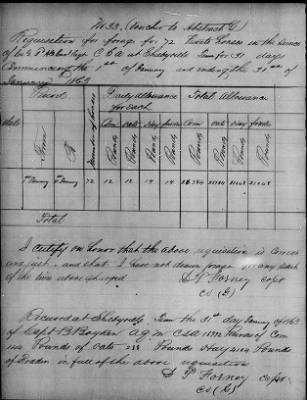 No 33, (Voucher to Abstract G)
Requisition for forage for 72 Private horses in the service
of Lt P A Regt C.S.A at Shelbyville Tenn for 31 days
Commencing the 1st of January and ending the 31st of
January 1863
Period Daily allowance Total Allowance
for each
Date From To Number of horses Corn oats Hay fodder Corn oats Hay fodder
Pounds Pounds Pounds Pounds Pounds Pounds Pounds Pounds
1st January 31 January 72 12 12 14 14
Total
I certify on honor that the above requisition is correct
and just, and that I have not drawn forage for any part
of the time above charged
D P Forney Capt
Co (E)
Received at Shelbyville Tenn the 31st day January of 1863
of Capt B Boykin A.Q.M. C.S.A Pounds of Corn
Pounds of Oats Pounds Hay Pounds
of Fodder in full of the above requisition
D P Forney Capt
Co (E)